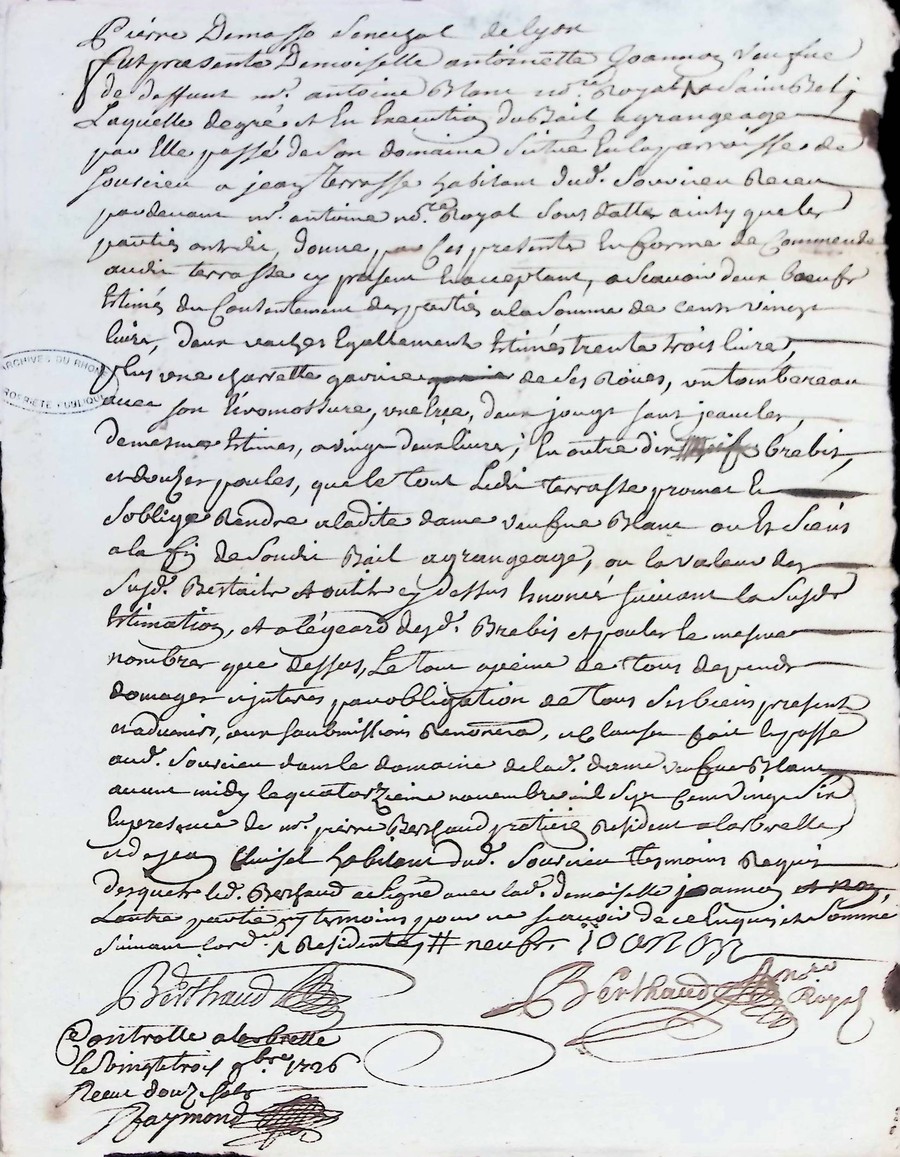 Pierre Demasso Senechal de Lyon
fut presente Demoiselle antoinette Joannon veufue
de deffunt mr. antoine Blanc nore. Royal a Saint Bel ;
Laquelle de gré et En Execution du Bail a grangeage
par Elle passé de Son domaine Situé En la parroisse de
Sourcieu a jean terrasse habitant dud. Sourcieu Receu
pardeuant mr. antoine nore. Royal Sous datte ainsy que les
parties ont dit, donne par Ces presentes En forme de Commende
audit terrasse cy present Et acceptant, a Scauoir deux boeufs
Estimés du Consentement des parties a la Somme de cents vingt
liures, deux vaches Egallement Estimés trente trois liures,
plus vne charrette garnie de Ses Roües, vn tombereau
auec son , vne , deux jougs sans jeaucles,
de mesme Estimés, a vingt deux liures ; En outre dix brebis,
et douzes poules, que le tout Ledit terrasse promet Et
S'oblige Rendre a ladite dame veufue Blanc ou Es Siens
a la fin de Soudit Bail a grangeage, ou la valeur des
Susd. Bestails et outils cy dessus Enoncés Suiuant la Susdte
Estimation, et a l'égeard desd. Brebis et poules le mesme
nombres que dessus, Le tout a peine de tous depends
domages interes par obligation de tous Ses biens presents
et aduenirs, aux Soubmissions Renoncia, et Clauses fait et passé
aud. Sourcieu dans le domaine de lad. dame veufue Blanc
auant midy le quatorzieme nouembre mil Sept Cent Vingt Six
En presence de mr. pierre Berthaud praticien Resident a larbrelle
et de jean habitant dud. Sourcieu tesmoins Requis
desquels led. Berthaud a Signé auec lad. demoiselle joannon et non
Lautre partie ny tesmoins pour ne scauoir de ce Enquis et Sommé
Suiuant lord. Residente, # neufs Joanon
Berthaud Berthaud nore Royal
Controllé a larbrelle
le vingt trois 9bre 1726
Receu douze sols
Raymond
ARCHIVES DU RHONE
PROPRIÉTÉ PUBLIQUE